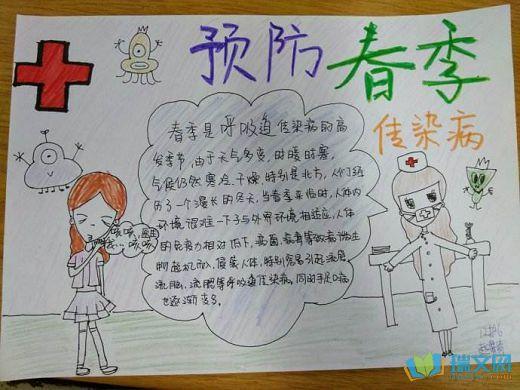 预防春季
传染病
春季是呼吸道传染病的高
发季节,由于天气多变,时暖时寒,
气候仍然寒冷、干燥,特别是北方,人们经
历了一个漫长的冬天,当春季来临时,人体内
环境很难一下子与外界环境相适应,人体
的免疫力相对低下,细菌、病毒等致病微生
物趁机而入,侵袭人体,特别容易引起流感、
流脑、流腮等呼吸道传染病,同时手足口病
也逐渐变多。
咳咳
咳咳
瑞文网